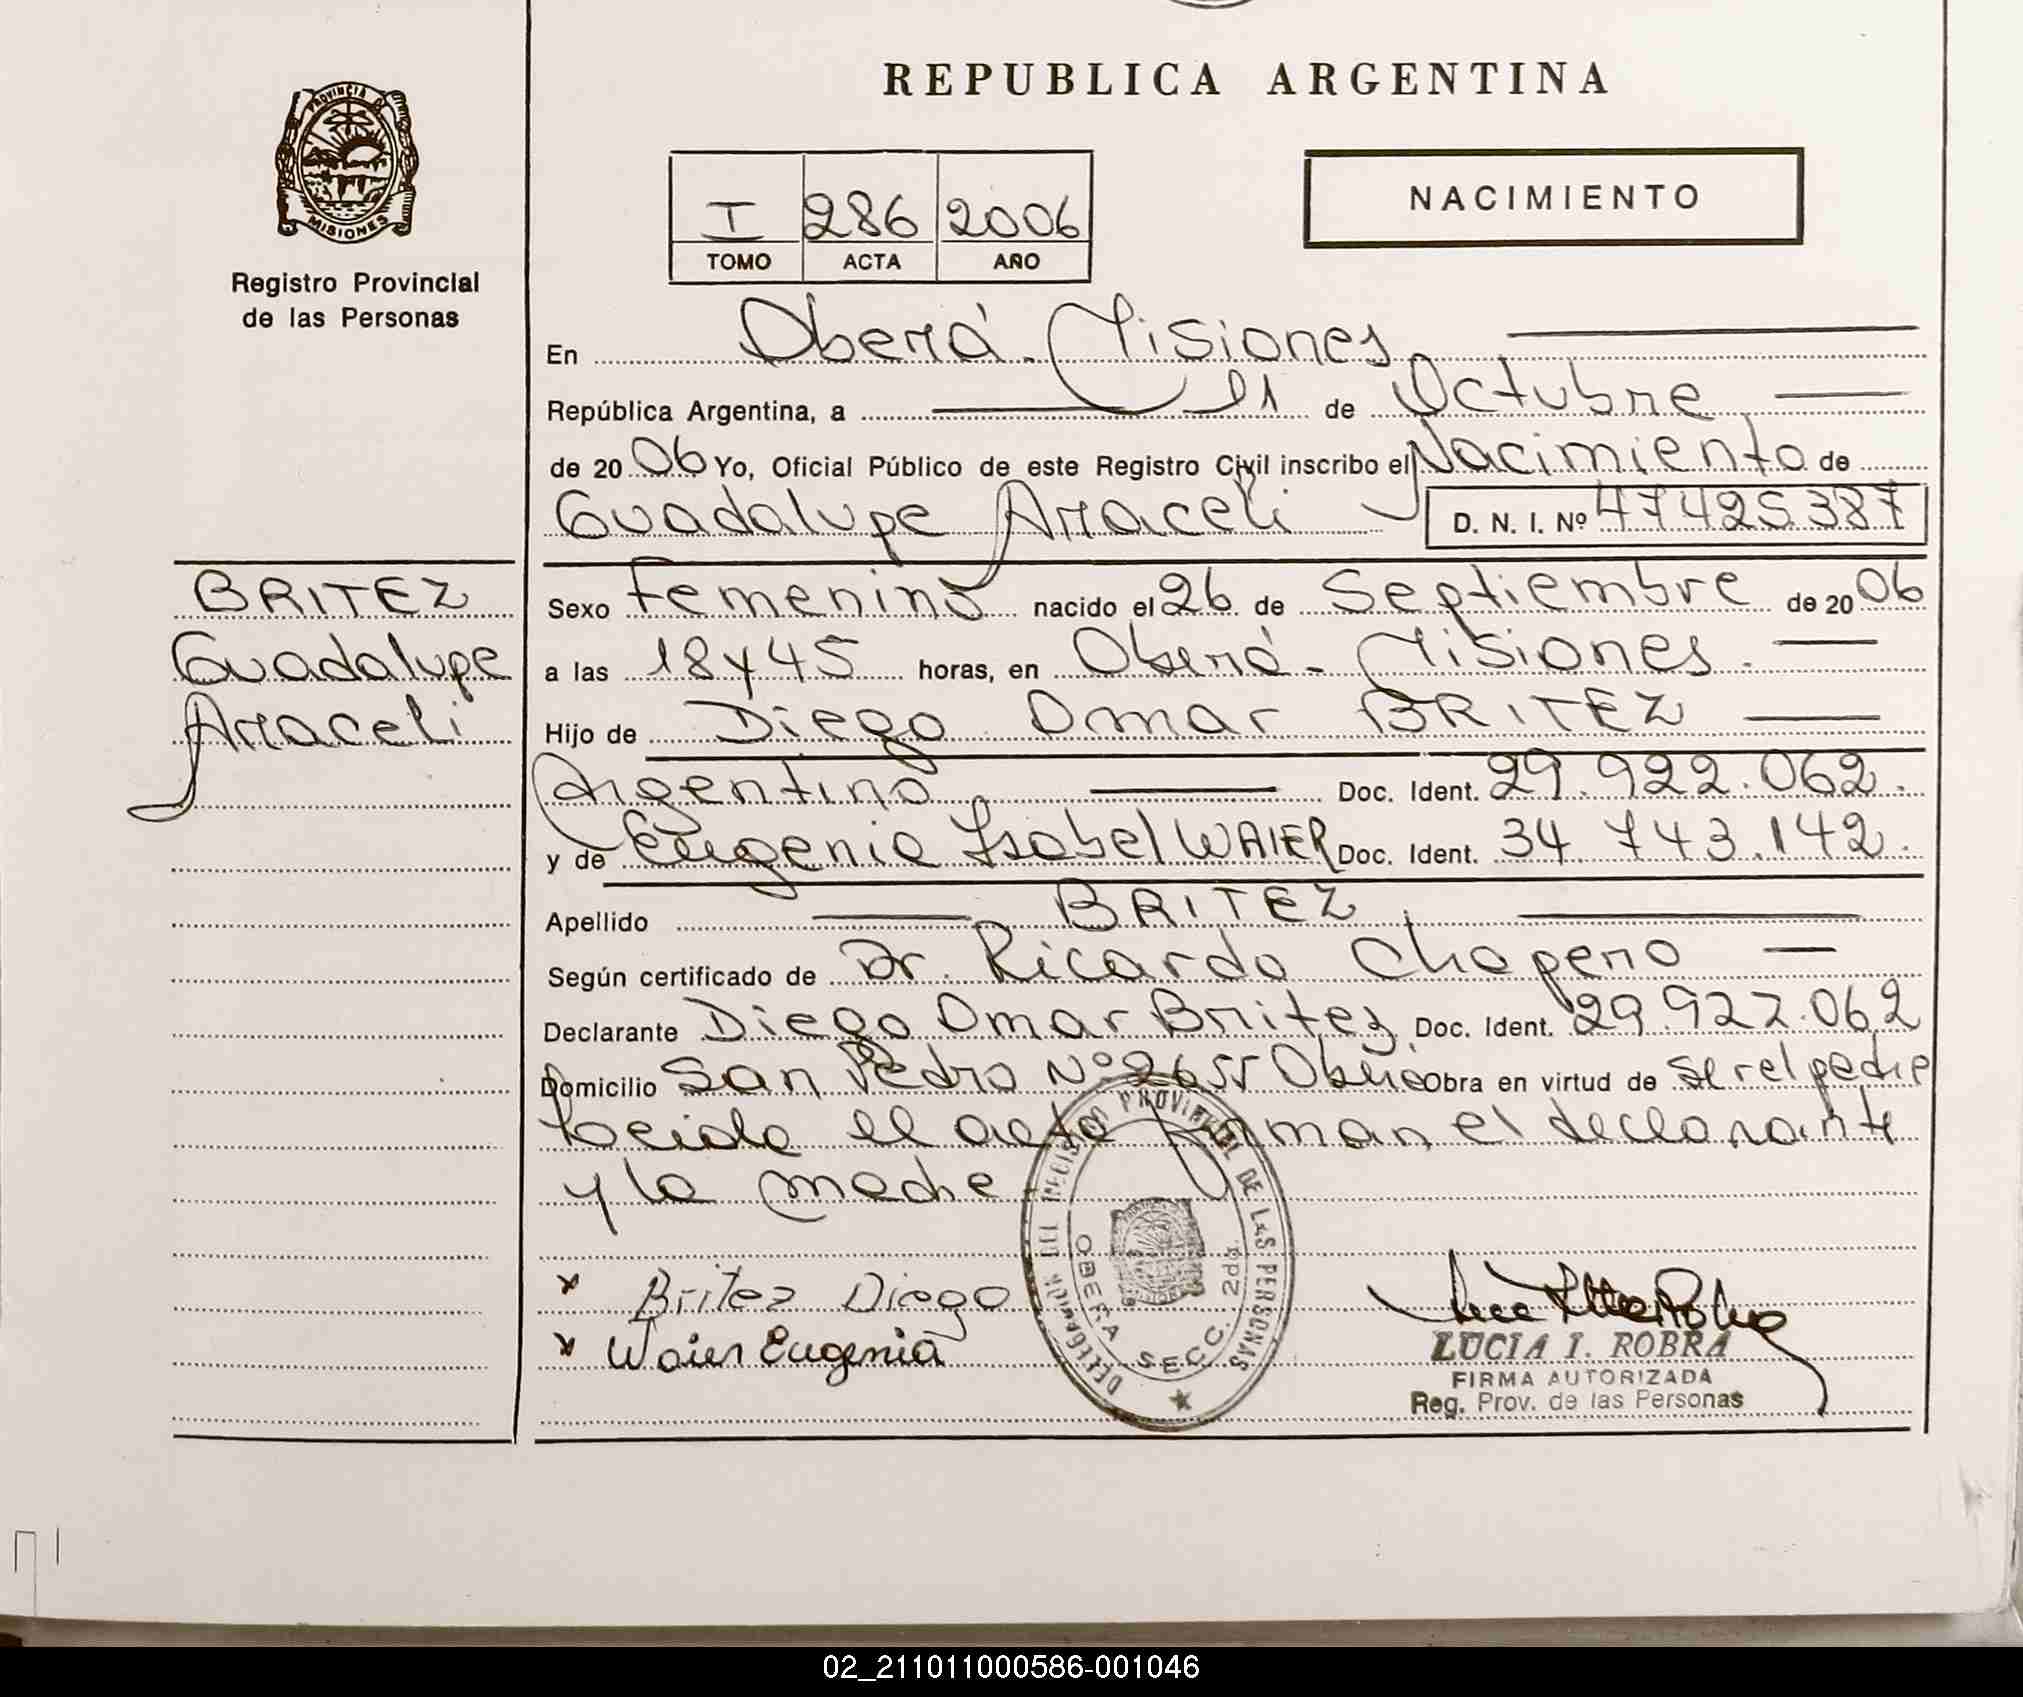 REPUBLICA ARGENTINA
PROVINCIA DE
MISIONES
Registro Provincial
de las Personas
I 286 2006
TOMO ACTA AÑO
NACIMIENTO
En Oberá - Misiones
República Argentina, a 21 de Octubre
de 20 06 Yo, Oficial Público de este Registro Civil inscribo el Nacimiento de
Guadalupe Araceli D. N. I. Nº 47425387
BRITEZ
Guadalupe
Araceli
Sexo Femenino nacido el 26 de Septiembre de 20 06
a las 18 y 45 horas, en Oberá - Misiones.
Hijo de Diego Omar BRITEZ
Argentino Doc. Ident. 29.922.062.
y de Eugenia Isabel WAIER Doc. Ident. 34.743.142.
Apellido BRITEZ
Según certificado de Dr. Ricardo Chapero
Declarante Diego Omar Britez Doc. Ident. 29.922.062
Domicilio San Pedro Nº 2655 Obra en virtud de ser el padre
el acta firman el declarante
y la madre
x Britez Diego
x Waier Eugenia
DELEGACION DEL REGISTRO PROVINCIAL DE LAS PERSONAS
OBERA SECC. 2da.
LUCIA I. ROBRA
FIRMA AUTORIZADA
Reg. Prov. de las Personas
02_211011000586-001046